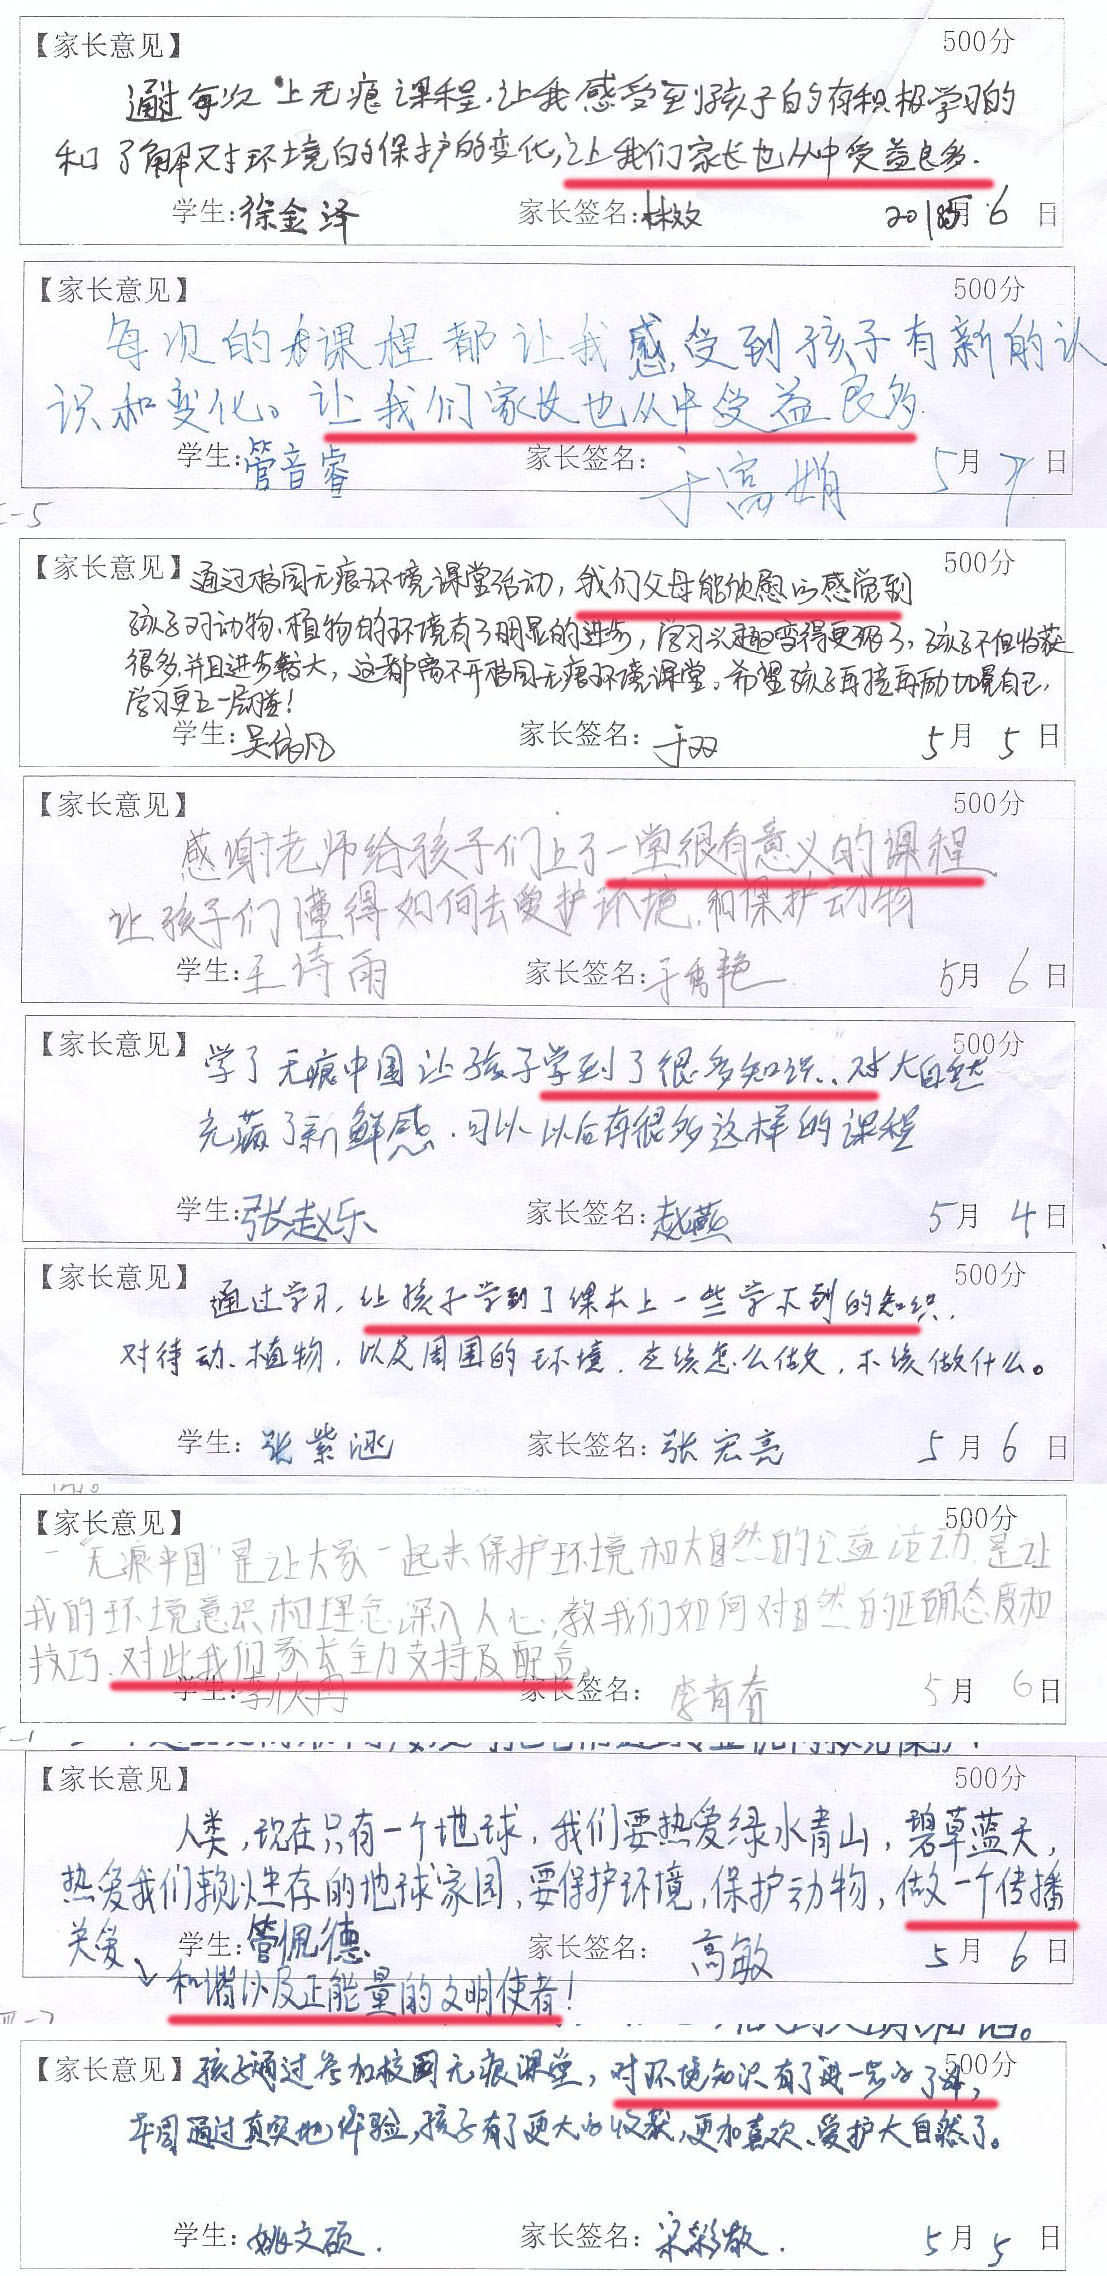 【家长意见】 500分
通过每次上无痕课程,让我感受到孩子的有积极学习的
和了解对环境的保护的变化,让我们家长也从中受益良多.
学生:徐金泽 家长签名:林效 2018 5月 6 日
【家长意见】 500分
每次的课程都让我感受到孩子有新的认
识和变化。让我们家长也从中受益良多.
学生:管音睿 家长签名: 于富娟 5月 7日
I-5
【家长意见】 500分
通过校园无痕环境课堂活动,我们父母能欣慰的感觉到
孩子对动物、植物的环境有了明显的进步,学习兴趣变得更浓了,孩子不但收获
很多,并且进步较大,这都离不开校园无痕环境课堂。希望孩子再接再励加景自己,
学习更上一层楼!
学生:吴依凡 家长签名: 于双 5月 5日
【家长意见】 500分
感谢老师给孩子们上了一堂很有意义的课程
让孩子们懂得如何去爱护环境,和保护动物
学生:王诗雨 家长签名:于秀艳 5月 6日
【家长意见】 500分
学了无痕中国让孩子学到了很多知识..对大自然
充满了新鲜感.可以以后有很多这样的课程
学生:张赵乐 家长签名:赵燕 5月 4日
【家长意见】 500分
通过学习,让孩子学到了课本上一些学不到的知识.
对待动、植物,以及周围的环境.应该怎么做,不该做什么。
学生: 张紫涵 家长签名: 张宏亮 5月 6日
【家长意见】 500分
"无痕中国"是让大家一起来保护环境和大自然的公益活动,是让
我的环境意识和理念深入人心,教我们如何对自然的正确态度和
技巧.对此我们家长全力支持及配合.
学生:李欣冉 家长签名: 李青春 5月 6日
I-1
【家长意见】 500分
人类,现在只有一个地球,我们要热爱绿水青山,碧草蓝天,
热爱我们赖以生存的地球家园,要保护环境,保护动物,做一个传播
关爱
学生:管佩德 家长签名: 高敏 5月 6日
和谐以及正能量的文明使者!
【家长意见】 500分
孩子通过参加校园无痕课堂,对环境知识有了进一步的了解,
本周通过真实地体验,孩子有了更大的收获,更加喜欢、爱护大自然了。
学生:姚文硕. 家长签名:宋彩散. 5月 5日